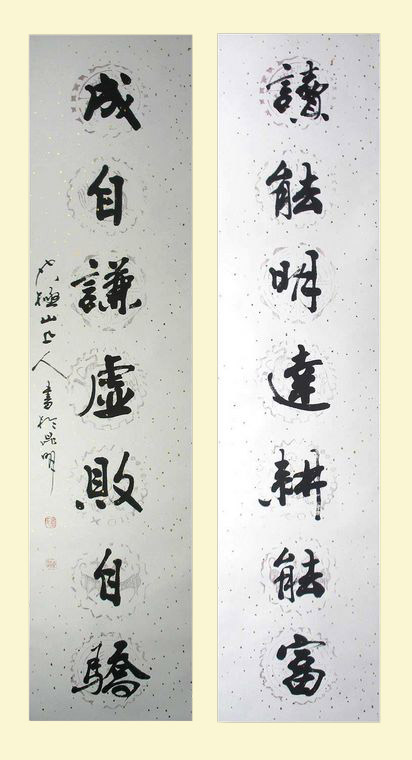 讀能明達耕能富
成自謙虚敗自驕
極山上人書於昆明